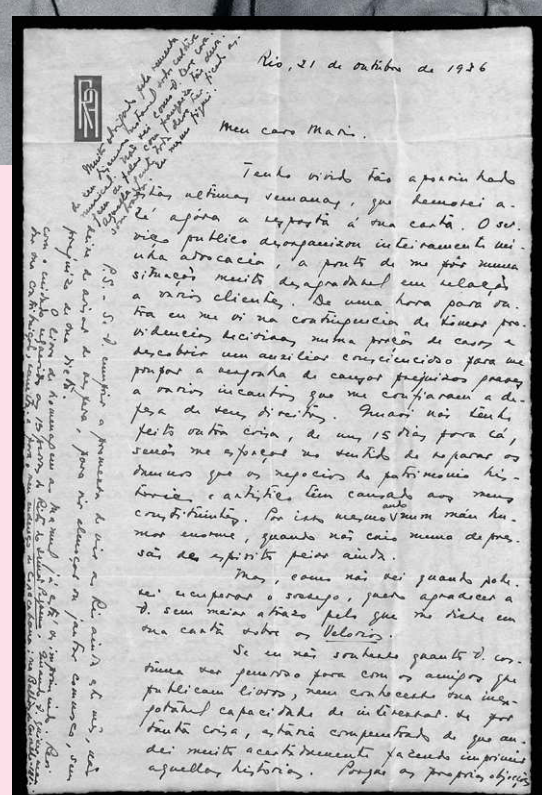 Rio, 21 de outubro de 1936
Meu caro Mario.
Tenho vivido tão aporrinhado
estas ultimas semanas, que demorei a-
té agora a resposta á sua carta. O ser-
viço publico desorganizou inteiramente mi-
nha advocacia, a ponto de me pôr numa
situação muito desagradavel em relação
a varios clientes. De uma hora para ou-
tra eu me vi na contingencia de tomar pro-
videncias decisivas numa porção de casos e
descobrir um auxiliar consciencioso para me
poupar a vergonha de causar prejuizos graves
a varios incautos que me confiaram a de-
fesa de seus direitos. Quasi não tenho
feito outra coisa, de uns 15 dias para cá,
senão me esforçar no sentido de reparar os
damnos que os negocios de patrimonio his-
torico e artistico têm causado aos meus
constituintes. Por isto mesmo ando num máu hu-
mor enorme, quando não caio numa depres-
são de espirito peior ainda.
Mas, como não sei quando pode-
rei recuperar o socego, quero agradecer a
V. sem maior atrazo pelo que me disse em
sua carta sobre os Velorios.
Se eu não soubesse quanto V. cos-
tuma ser generoso para com os amigos que
publicam livros, nem conhecesse sua ines-
gotavel capacidade de interessar-se por
tanta coisa, estaria compenetrado de que an-
dei muito acertadamente fazendo imprimir
aquellas historias. Porque as proprias objecções
P.S. - Si V. cumprir a promessa de vir ao Rio ainda este mês, não
deixe de avisar de para vir almoçar ou jantar comnosco, sem
prejuizo de sua dieta.
O livro de homenagem ao Manuel já está se imprimindo.
com o cuidado
Muito obrigado pela remessa